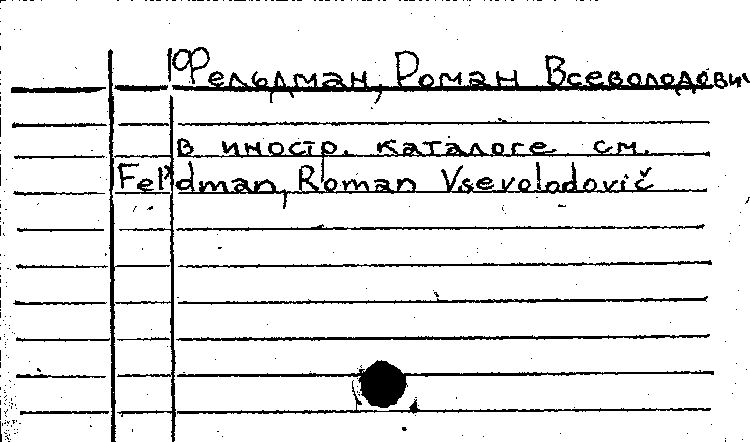 Фельдман, Роман Всеволодович
в иностр. каталоге см.
Fel'dman, Roman Vsevolodovič